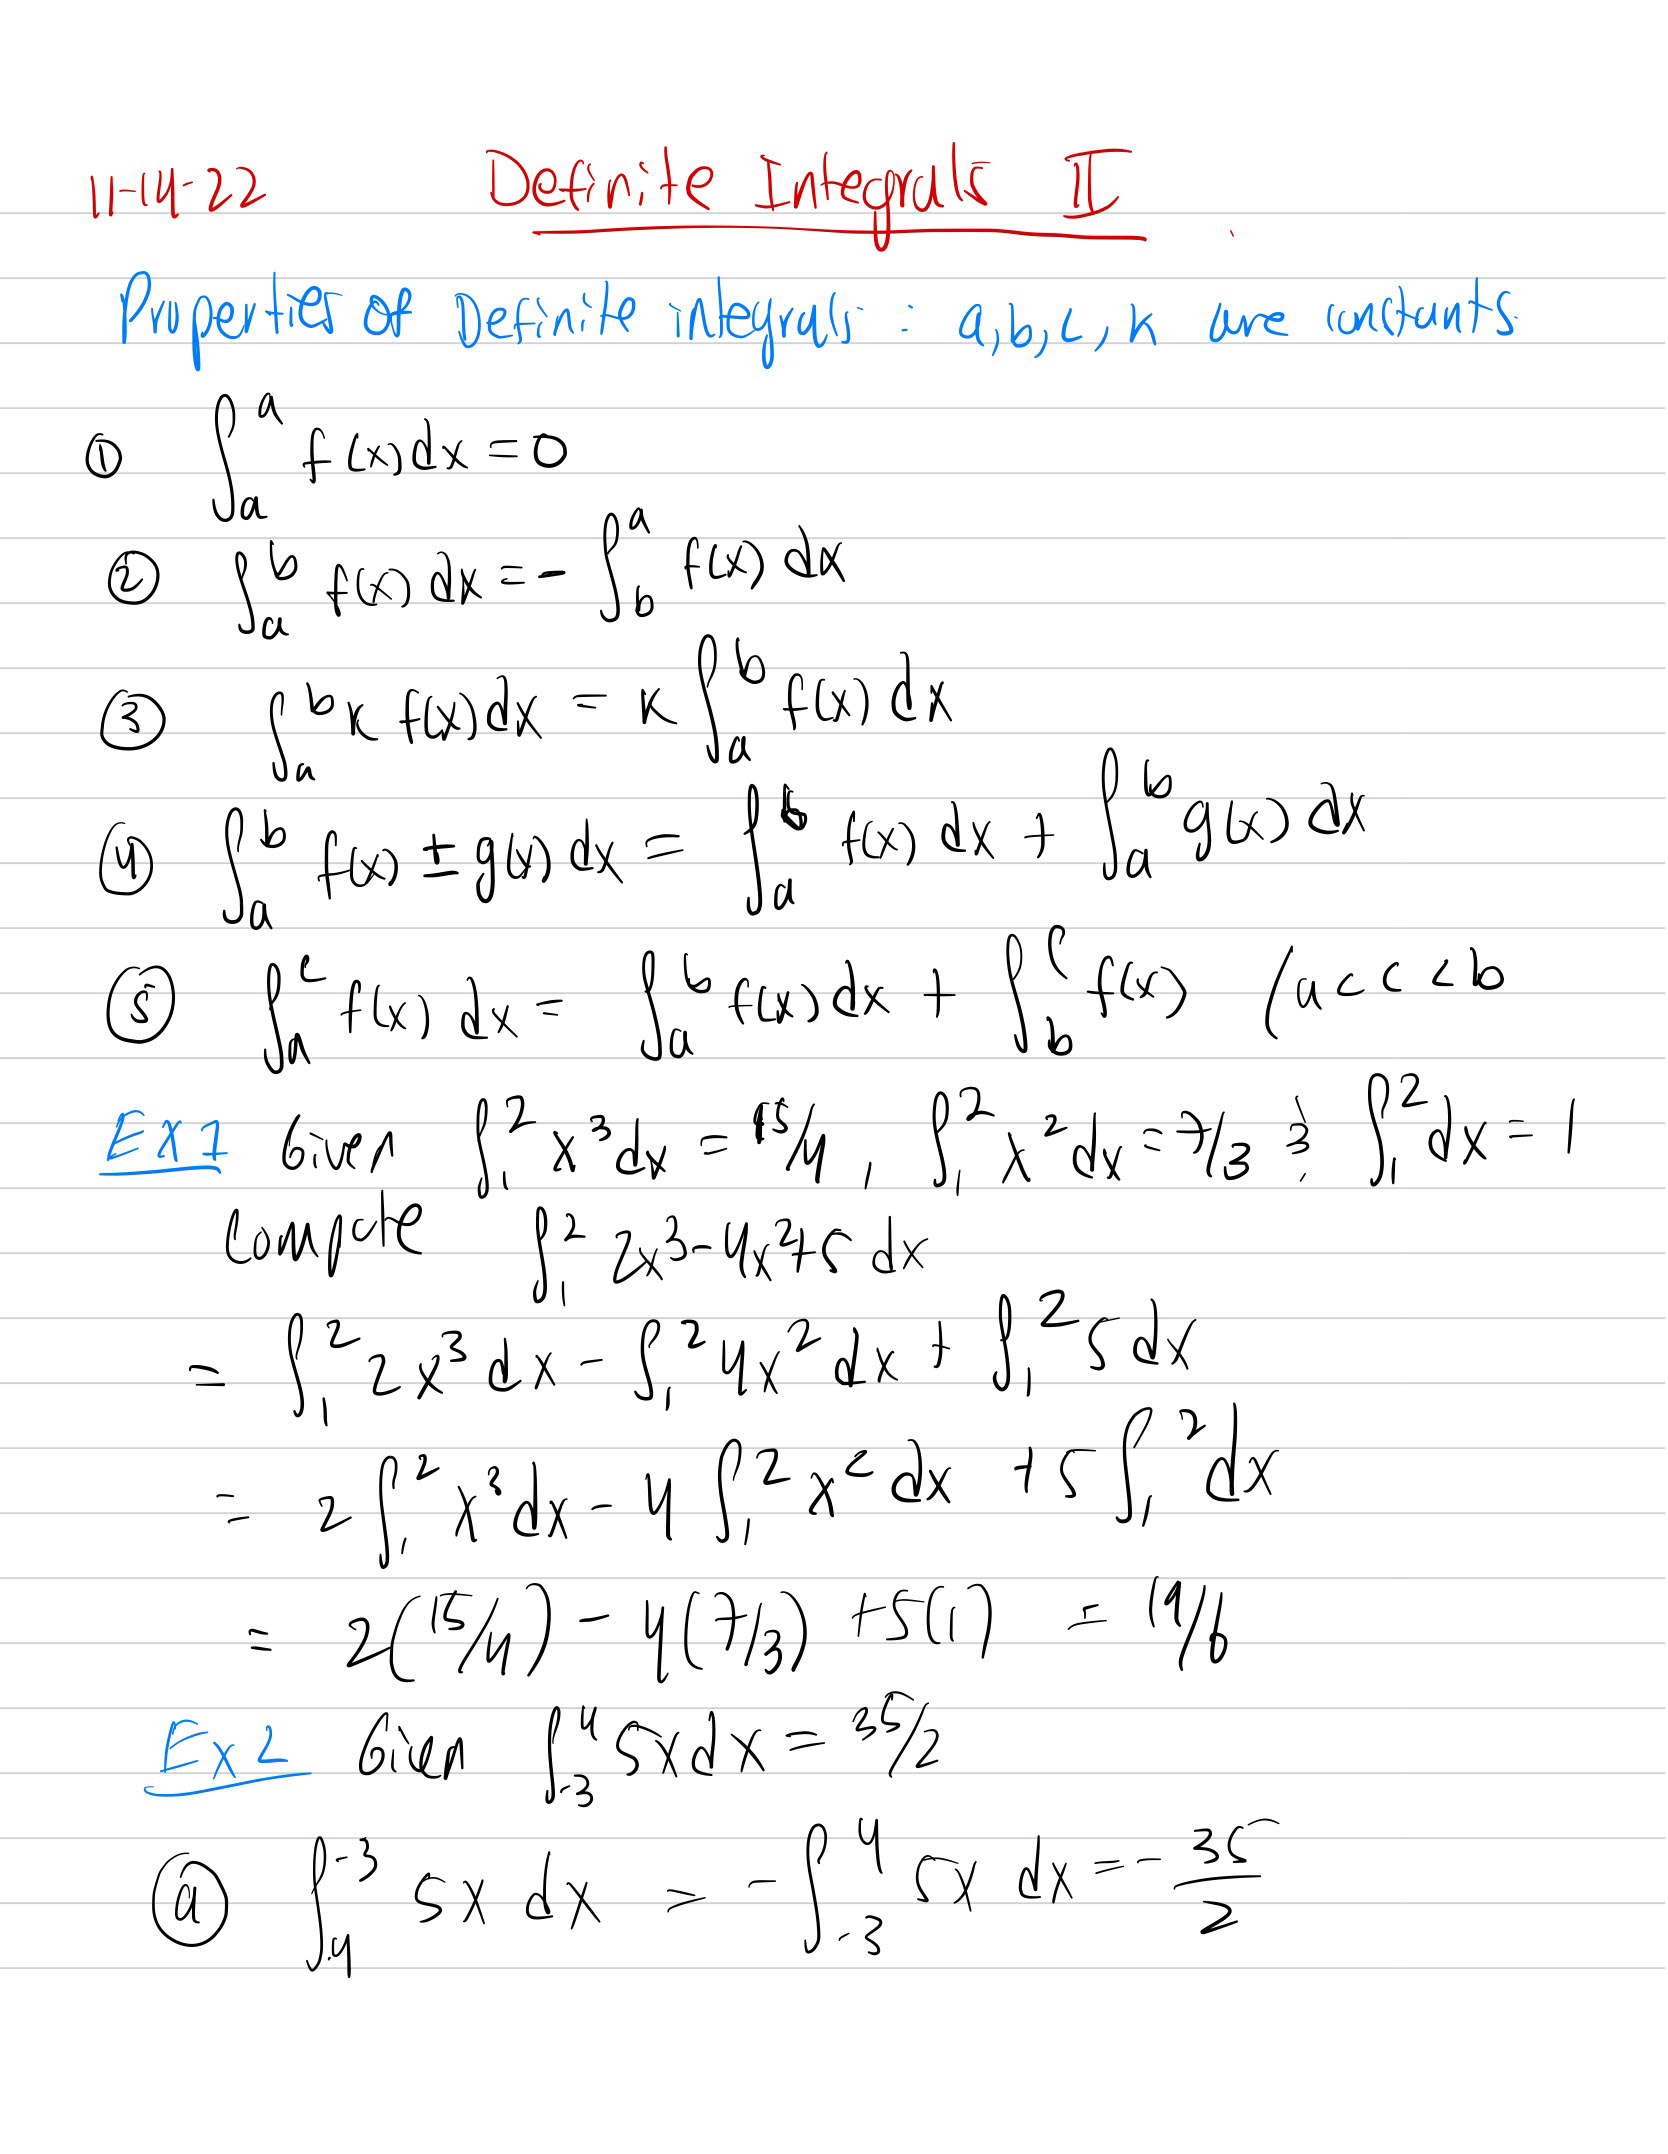 11-14-22 Definite Integrals II
Properties of Definite integrals : a,b,c,k are constants.
① ∫_a^a f(x)dx = 0
② ∫_a^b f(x) dx = - ∫_b^a f(x) dx
③ ∫_a^b k f(x)dx = k ∫_a^b f(x) dx
④ ∫_a^b f(x) ± g(x) dx = ∫_a^b f(x) dx + ∫_a^b g(x) dx
⑤ ∫_a^c f(x) dx = ∫_a^b f(x) dx + ∫_b^c f(x) (a<c<b
EX 1 Given ∫_1^2 x^3 dx = 15/4 , ∫_1^2 x^2 dx = 7/3 & ∫_1^2 dx = 1
Compute ∫_1^2 2x^3 - 4x^2 + 5 dx
= ∫_1^2 2x^3 dx - ∫_1^2 4x^2 dx + ∫_1^2 5 dx
= 2 ∫_1^2 x^3 dx - 4 ∫_1^2 x^2 dx + 5 ∫_1^2 dx
= 2(15/4) - 4(7/3) + 5(1) = 19/6
Ex 2 Given ∫_-3^4 5x dx = 35/2
ⓐ ∫_4^-3 5x dx = - ∫_-3^4 5x dx = - 35/2